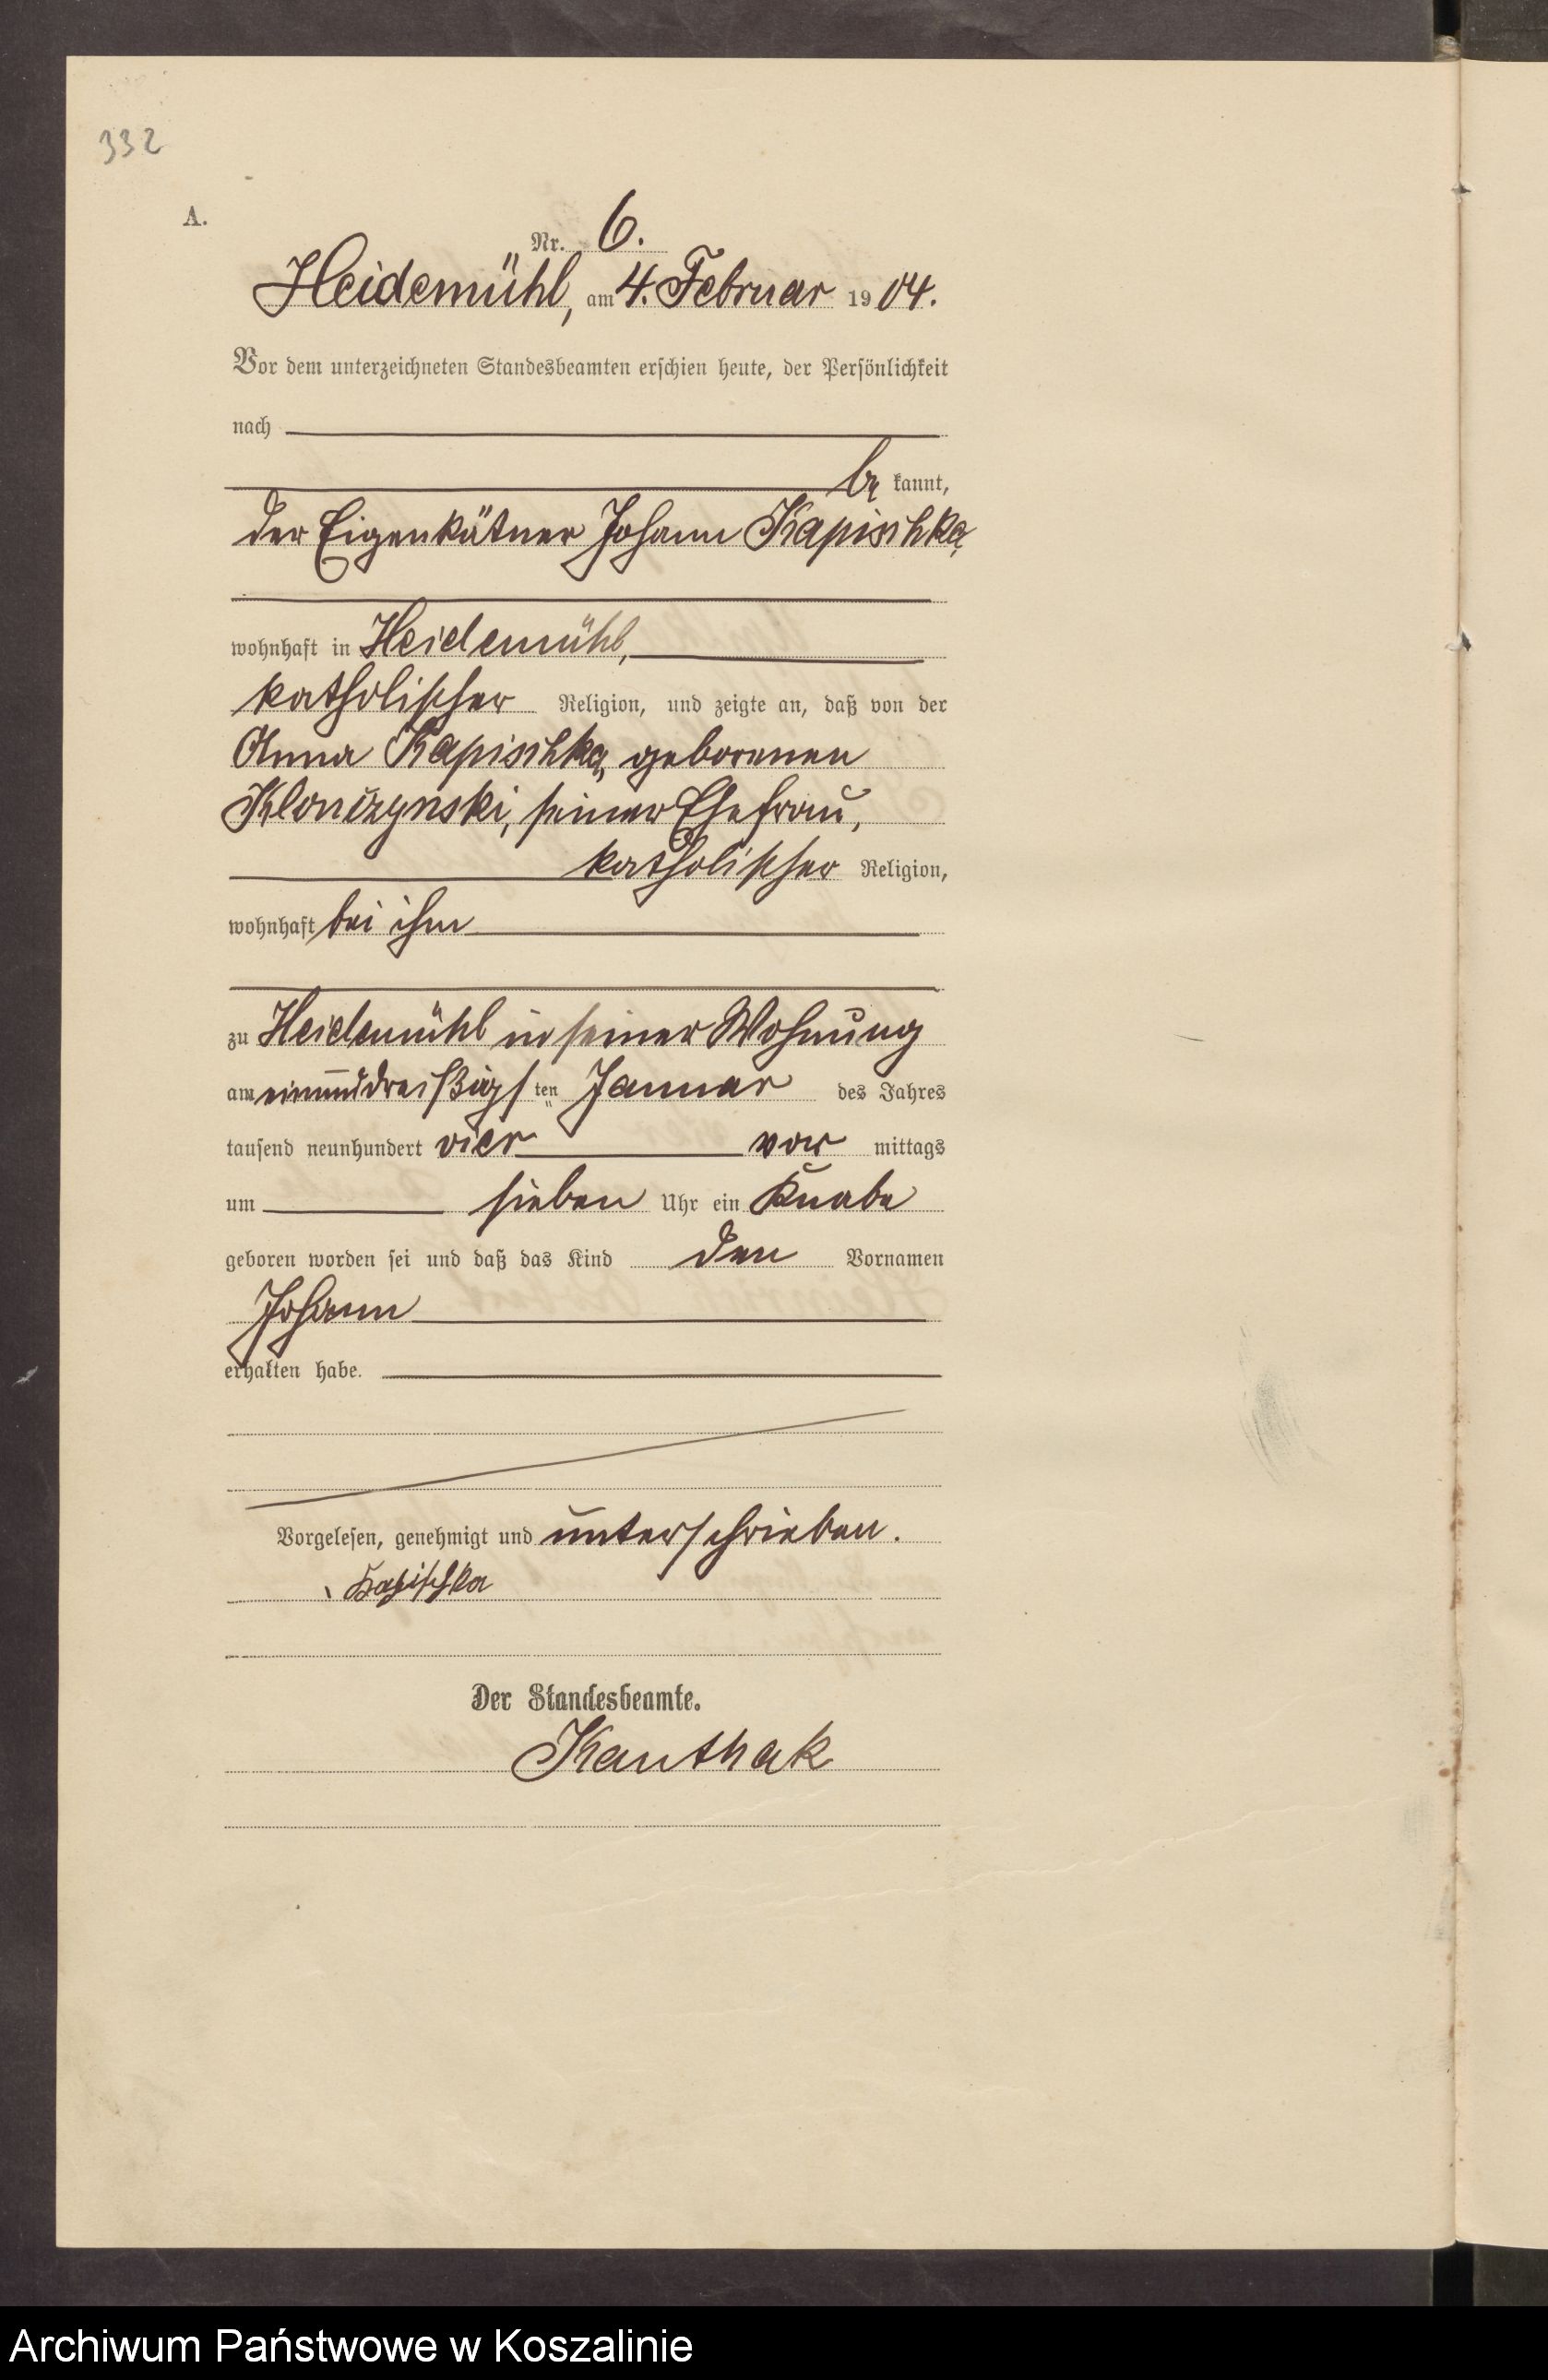 332
A.
Nr. 6.
Heidemühl, am 4. Februar 1904.
Vor dem unterzeichneten Standesbeamten erschien heute, der Persönlichkeit
nach
be kannt,
der Eigenkätner Johann Kapischka,
wohnhaft in Heidemühl,
katholischer Religion, und zeigte an, daß von der
Anna Kapischka, geborenen
Klonczynski, seiner Ehefrau,
katholischer Religion,
wohnhaft bei ihm
zu Heidemühl in seiner Wohnung
am einunddreißigsten Januar des Jahres
tausend neunhundert vier vor mittags
um sieben Uhr ein Knabe
geboren worden sei und daß das Kind den Vornamen
Johann
erhalten habe.
Vorgelesen, genehmigt und unterschrieben.
Kapischka
Der Standesbeamte.
Kanthak
Archiwum Państwowe w Koszalinie